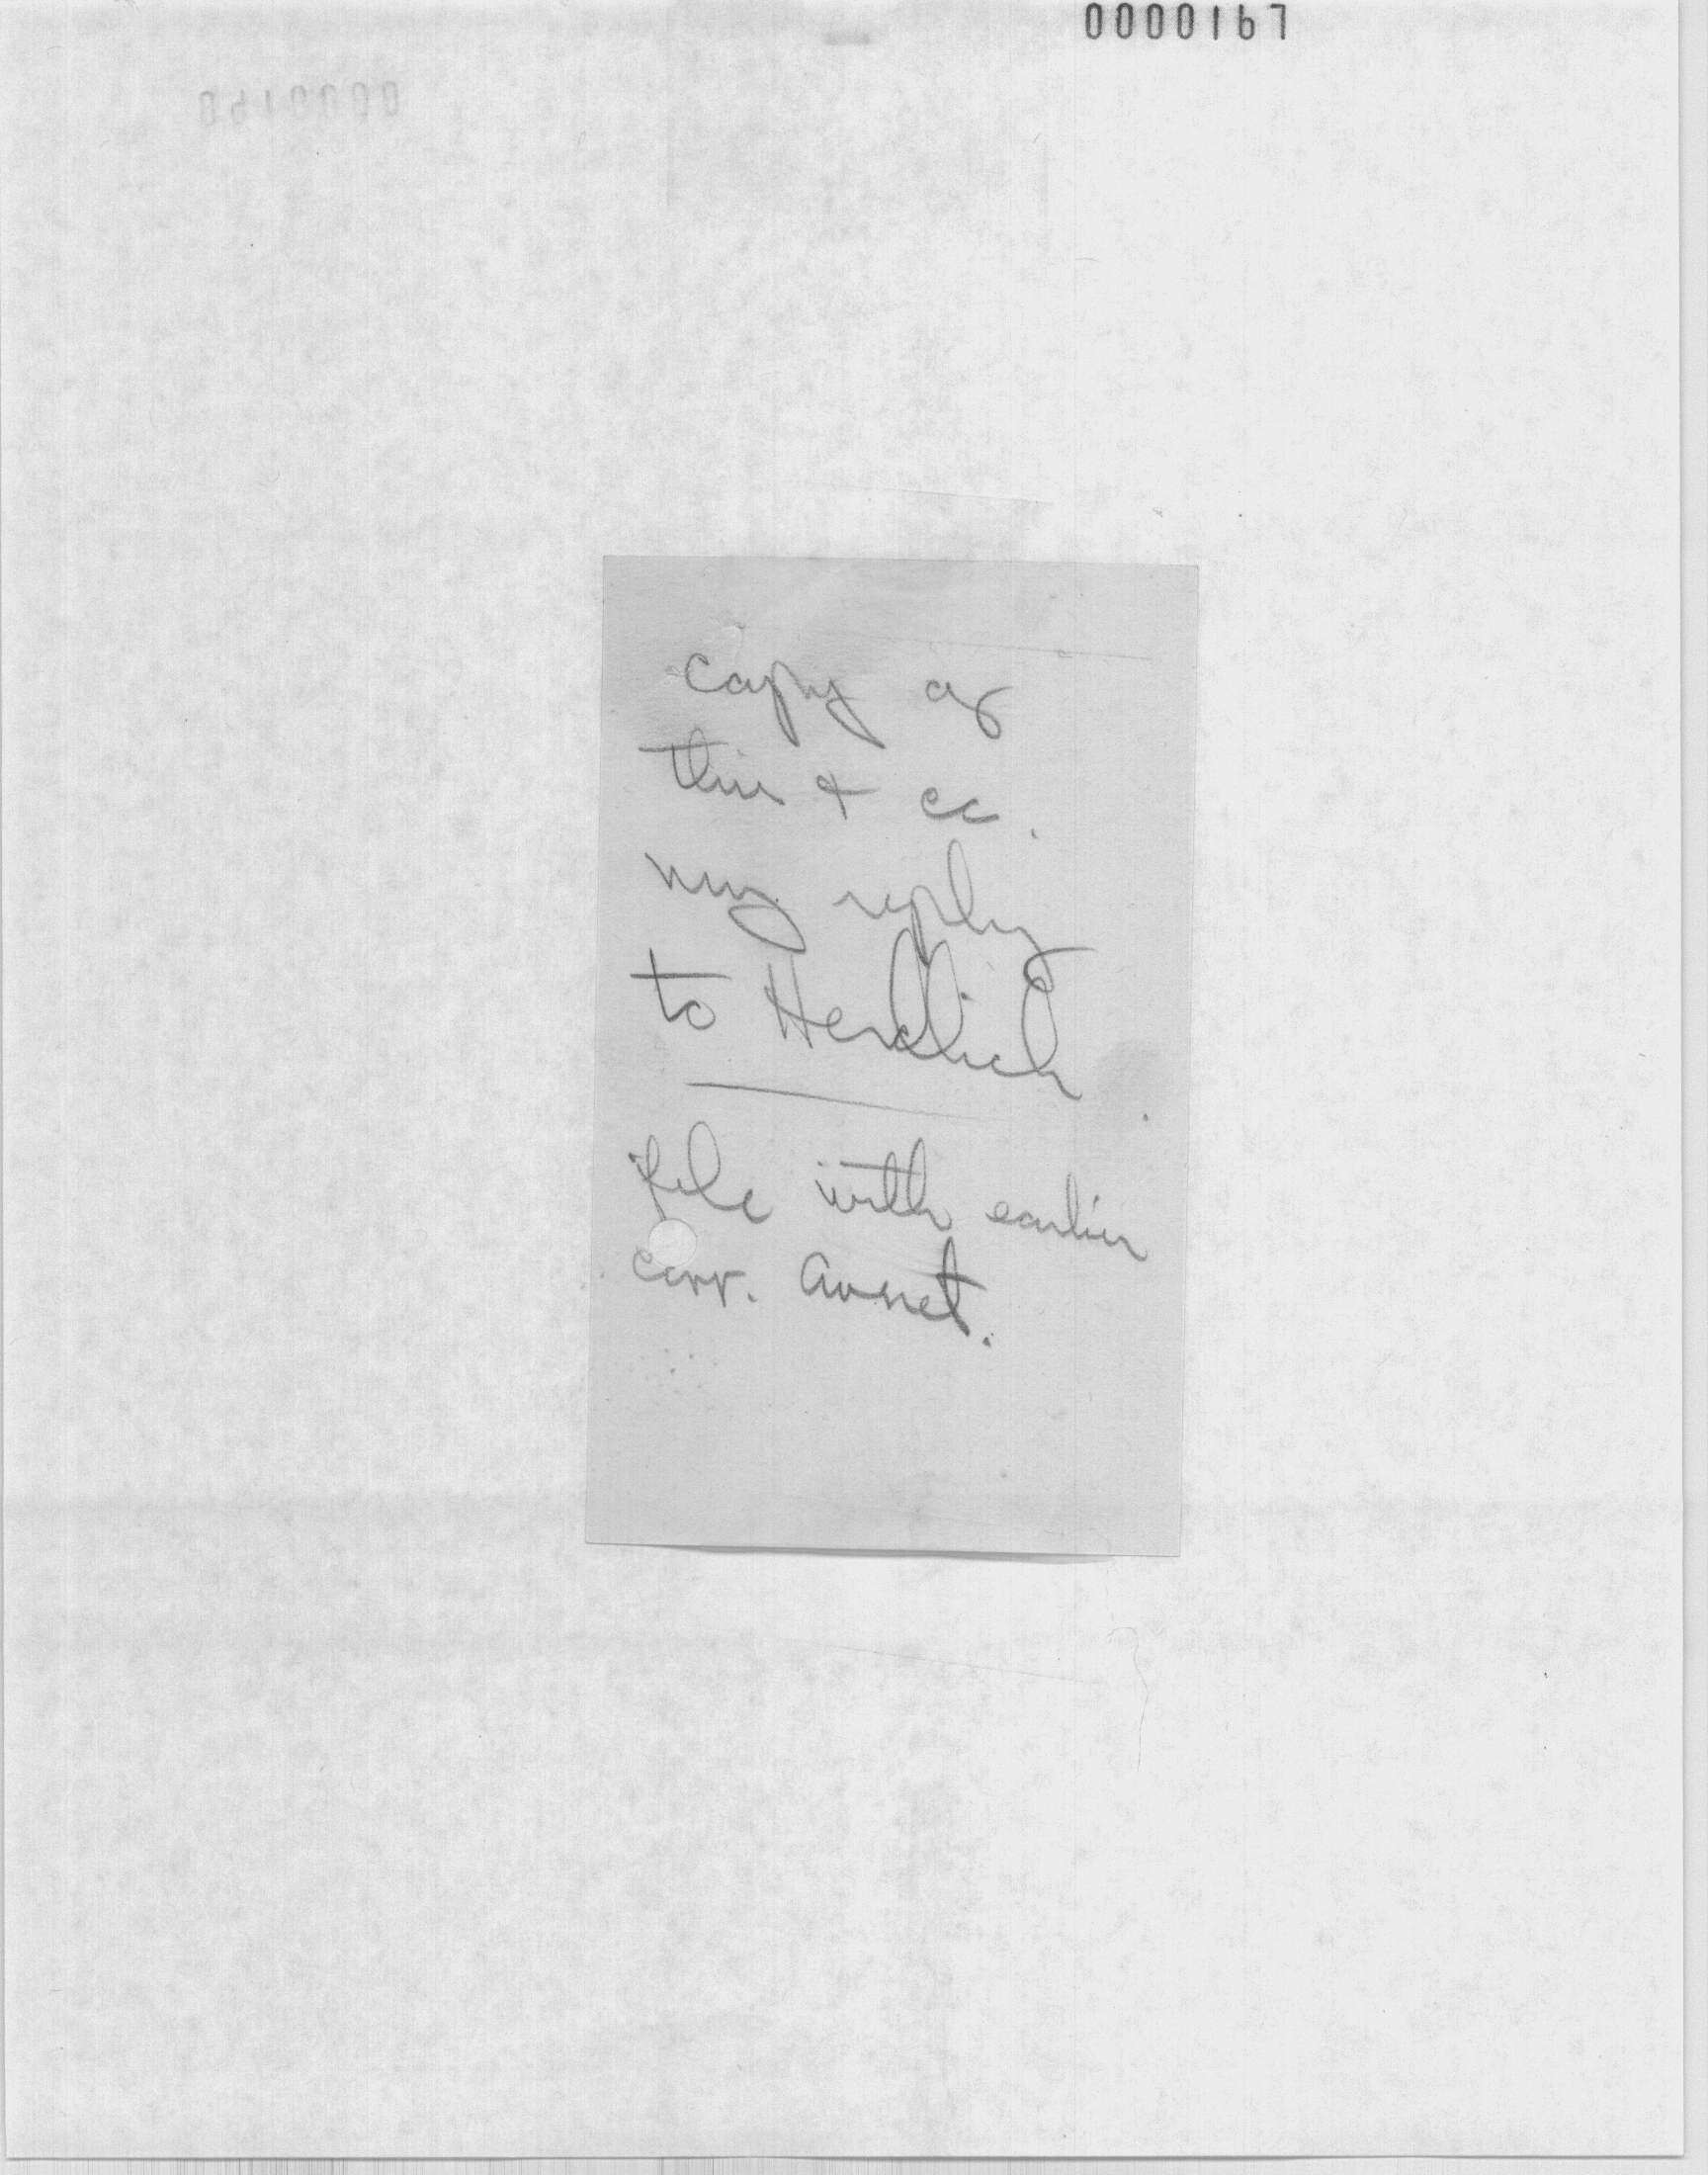 0000167
copy of
this + cc.
my reply
to Herdlich
file with earlier
corr. Avnet.